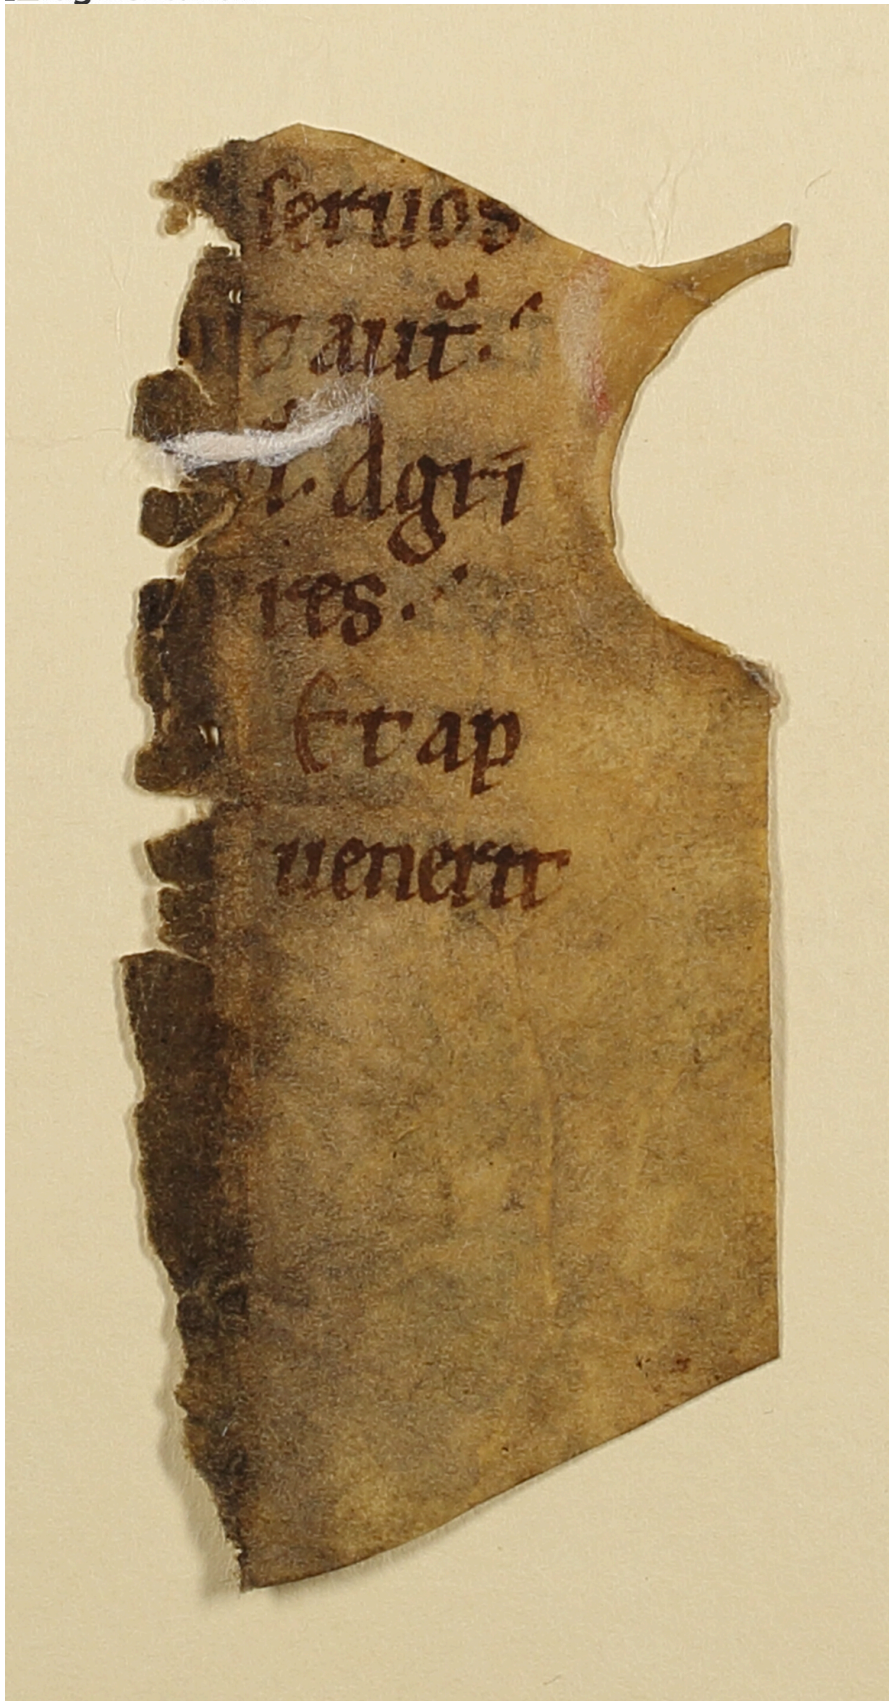 seruos
aut̄.
Agri
res.
Et ap
uenerit